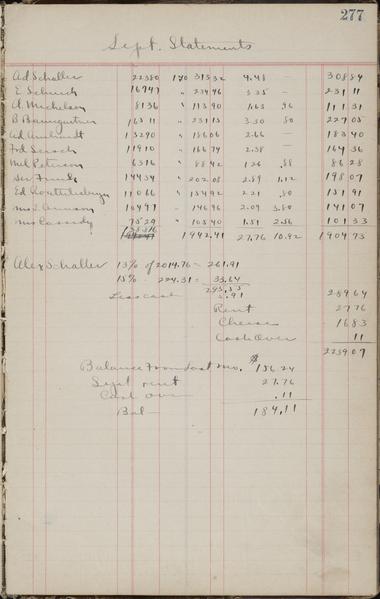 277
Sept. Statements
Ad Schaller 22380 1.40 313 32 4.48 — 308 84
E. Schuich 16747 " 234 46 3.35 — 231 11
A. Michelson 8136 " 113 90 1.63 .96 111 31
B Baumgartner 16511 " 231 15 3.30 .80 227 05
Ad 13290 " 186 06 2.66 — 183 40
Frd 11910 " 166 74 2.38 — 164 36
Mel Peterson 6316 " 88 42 1.26 .88 86 28
14434 " 202 08 2.89 1.12 198 07
Ed 11066 " 154 92 2.21 .80 151 91
Mrs 10497 " 146 96 2.09 3.80 141 07
Mrs Cassidy 7529 " 105 40 1.51 2.56 101 33
1942.41 27.76 10.92 1904 73
Alex Schaller 13% of 2014.76 = 261.91
15% 224.31 = 33.64
295.55
Less cash 5.91 289 64
Rent 27 76
Cheese 16 83
Cash Over 11
2239.07
Balance From Last Mo. $ 156.24
Sept rent 27.76
Cash over .11
Bal — 184.11